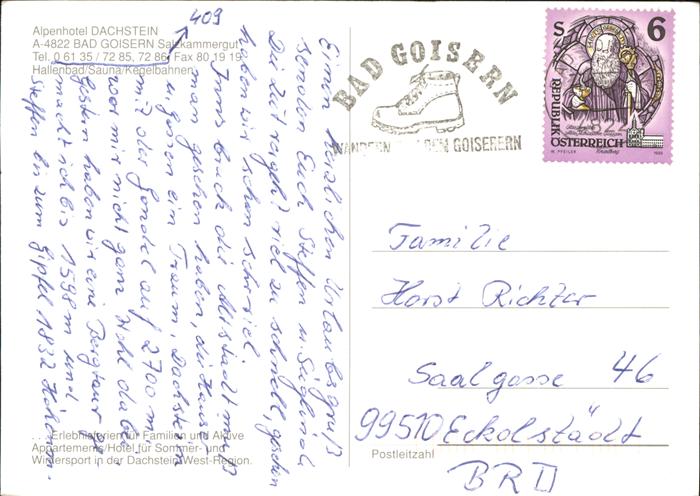 Alpenhotel DACHSTEIN
A-4822 BAD GOISERN Salzkammergut
Tel. 0 61 35 / 72 85, 72 86, Fax 80 19 19
Hallenbad/Sauna/Kegelbahnen
409
Einen herzlichen Urlaubsgruß
senden Euch Steffen u. Sieglinde
Die Zeit vergeht viel zu schnell, gesehen
haben wir schon sehr viel
Innsbruck die Altstadt muß
man gesehen haben, die Häuser
u. Gassen ein Traum, Dachstein
mit der Gondel auf 2700 m,
war mir nicht ganz Wohl dabei
Gestern haben wir eine Bergtour ge-
macht ich bis 1598 m und
Steffen bis zum Gipfel 1832 Höhenm.
...Erlebnisferien für Familien und Aktive
Appartements/Hotel für Sommer- und
Wintersport in der Dachstein-West-Region.
BAD GOISERN
WANDERN GOISERERN
S 6
REPUBLIK
ÖSTERREICH
W. PFEILER
Familie
Horst Richter
Saalgasse 46
99510 Eckolstädt
Postleitzahl
BRD